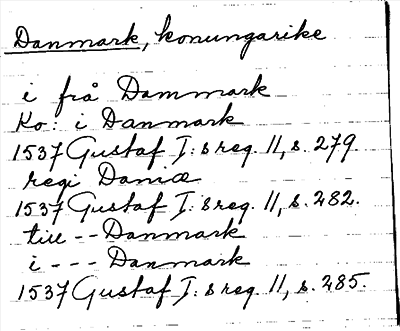 Danmark, konungarike
i frå Dammark
Ko: i Danmark
1537 Gustaf I:s reg. 11, s. 279.
regi Daniæ
1537 Gustaf I: s reg. 11, s. 282.
till -- Danmark
i --- Danmark
1537 Gustaf I: s reg. 11, s. 285.